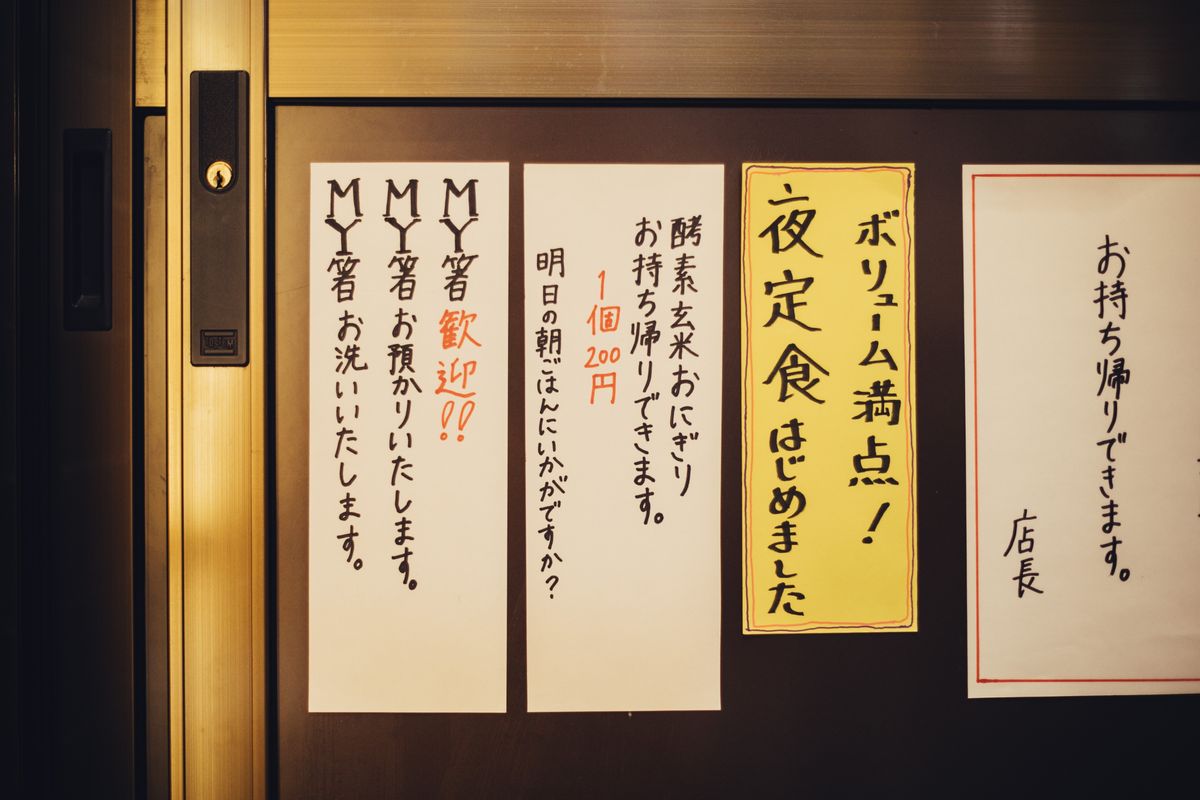 お持ち帰りできます。
店長
ボリューム満点！
夜定食はじめました
酵素玄米おにぎり
お持ち帰りできます。
1個200円
明日の朝ごはんにいかがですか？
MY箸歓迎!!
MY箸お預かりいたします。
MY箸お洗いいたします。